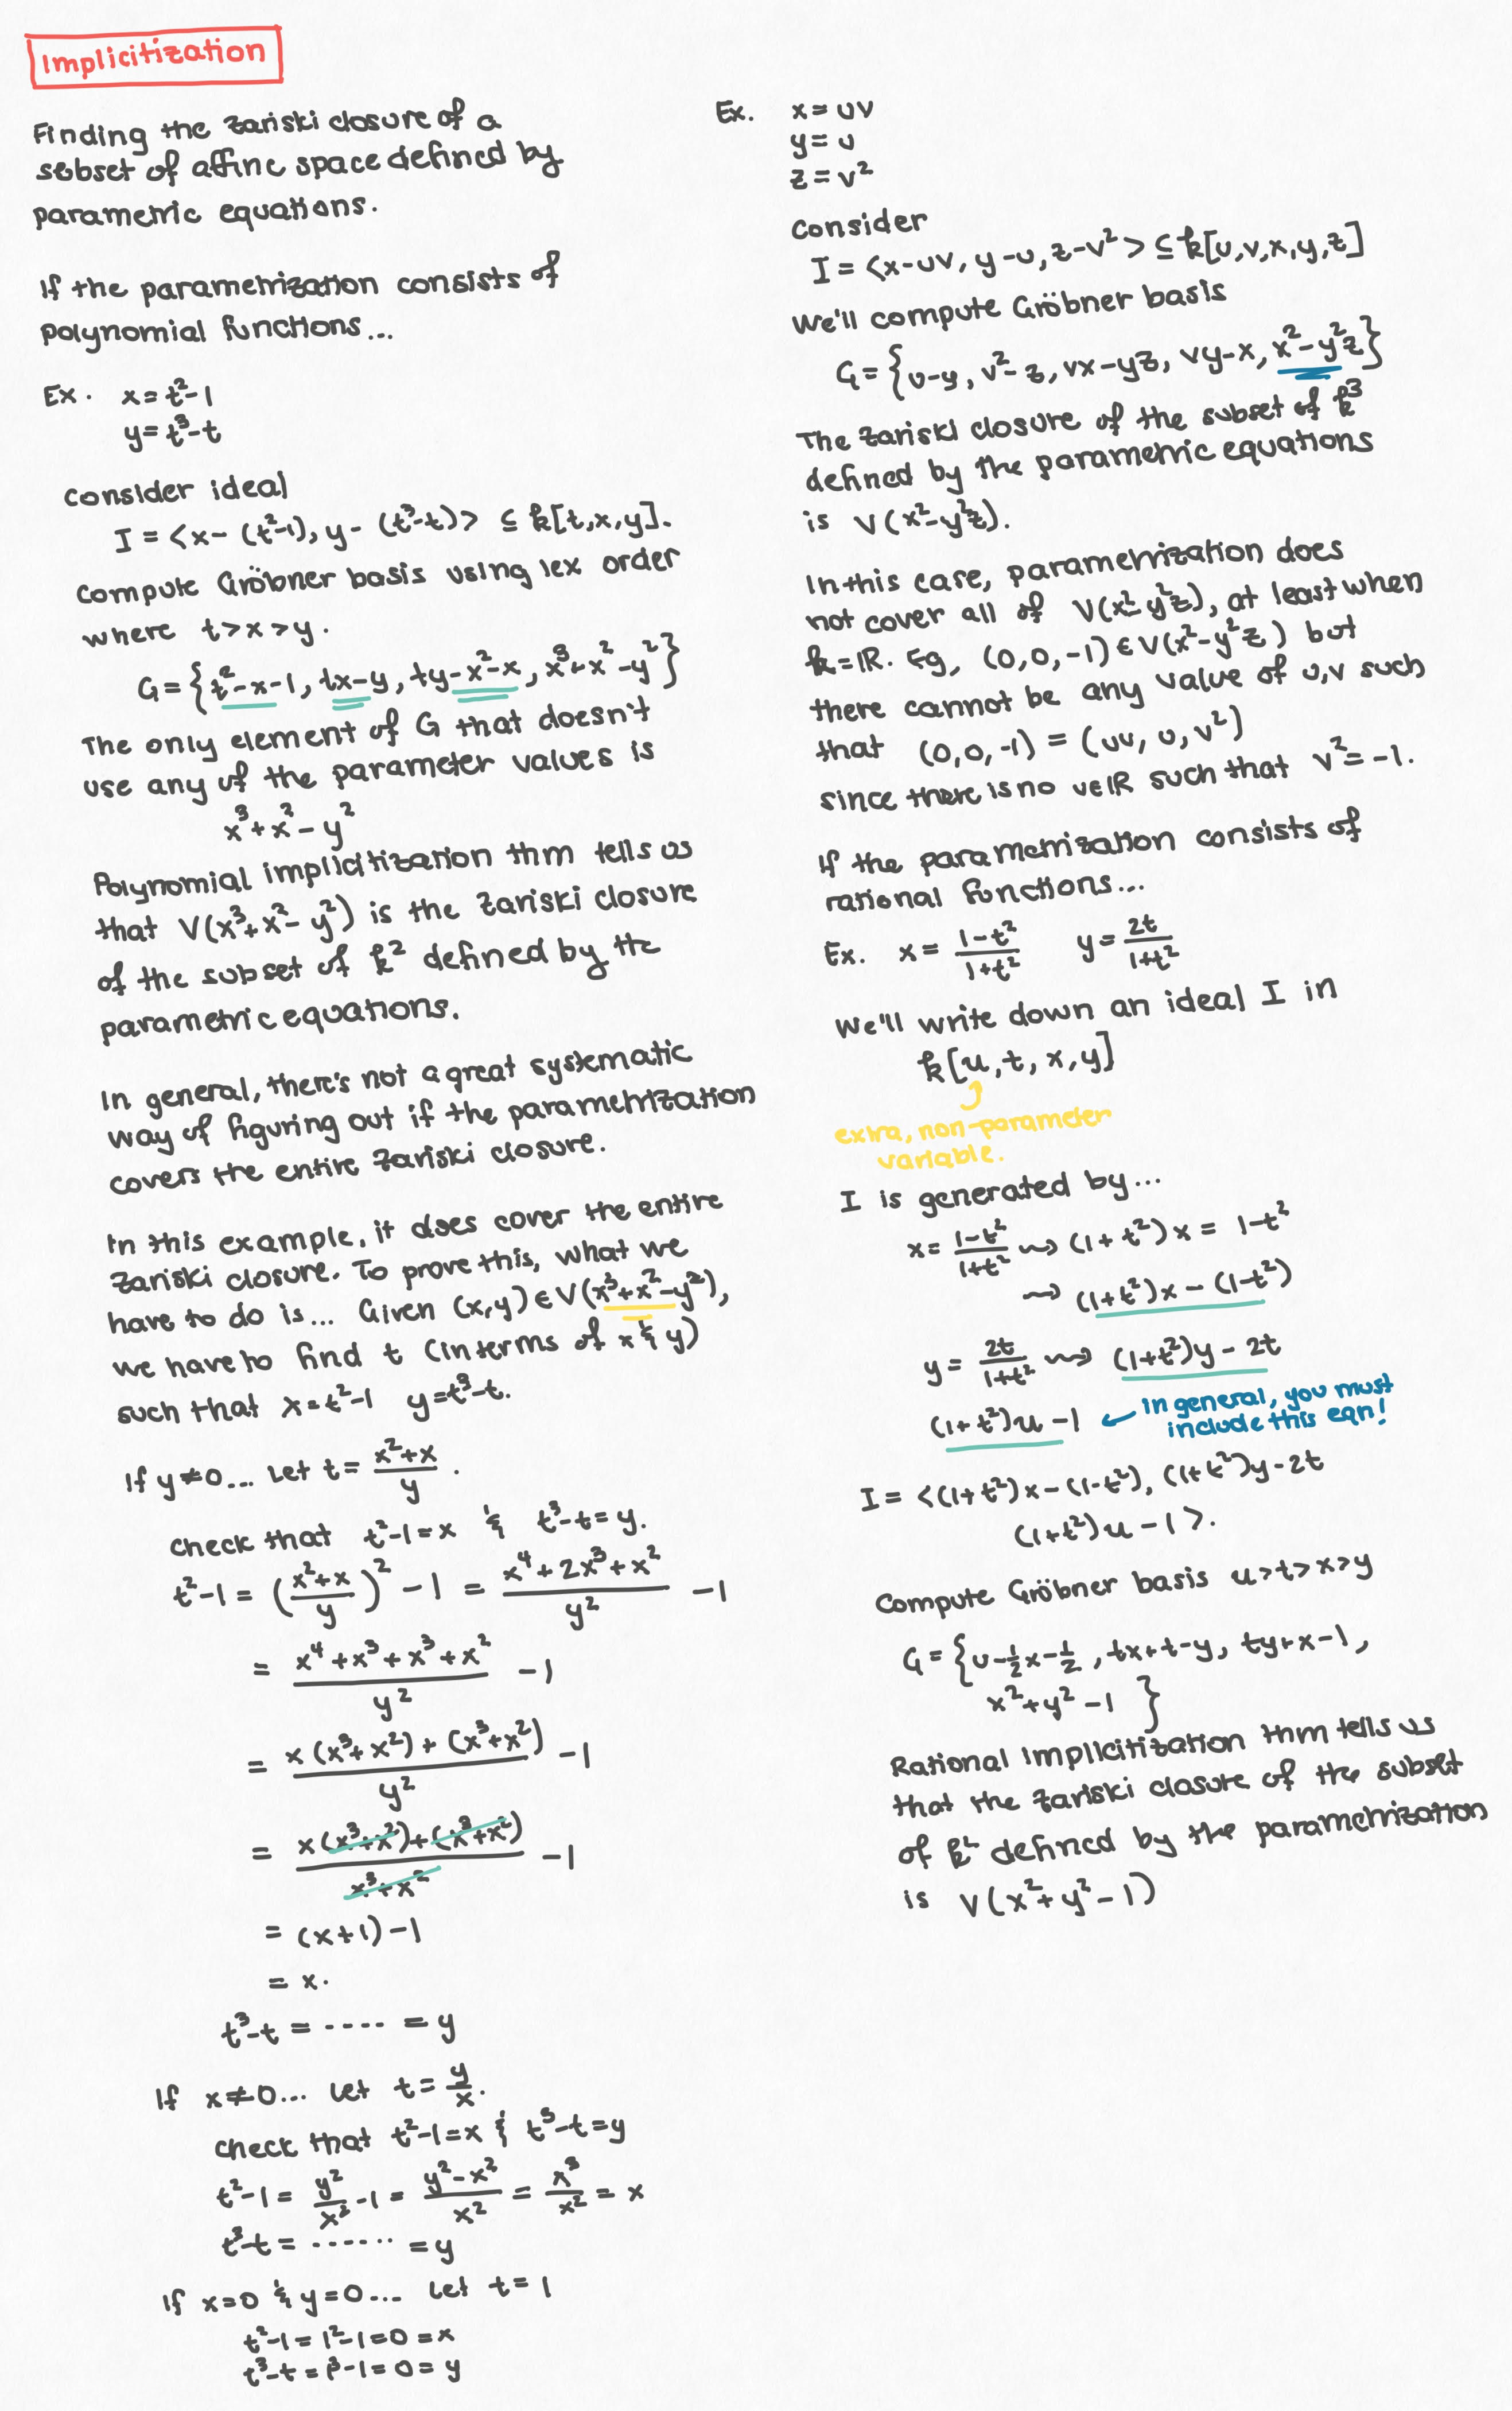 Implicitization
Finding the Zariski closure of a
subset of affine space defined by
parametric equations.
If the parametrization consists of
polynomial functions...
Ex. x = t²-1
y = t³-t
Consider ideal
I = <x-(t²-1), y-(t³-t)> ⊆ k[t,x,y].
Compute Gröbner basis using lex order
where t>x>y.
G = {t²-x-1, tx-y, ty-x²-x, x³+x²-y²}
The only element of G that doesn't
use any of the parameter values is
x³+x²-y²
Polynomial implicitization thm tells us
that V(x³+x²-y²) is the Zariski closure
of the subset of k² defined by the
parametric equations.
In general, there's not a great systematic
way of figuring out if the parametrization
covers the entire Zariski closure.
In this example, it does cover the entire
Zariski closure. To prove this, what we
have to do is... Given (x,y) ∈ V(x³+x²-y²),
we have to find t (in terms of x & y)
such that x=t²-1 y=t³-t.
If y≠0... Let t = (x²+x)/y.
Check that t²-1=x & t³-t=y.
t²-1 = ((x²+x)/y)² - 1 = (x⁴+2x³+x²)/y² - 1
= (x⁴+x³+x³+x²)/y² - 1
= (x(x³+x²)+(x³+x²))/y² - 1
= (x(x³+x²)+(x³+x²))/(x³+x²) - 1
= (x+1)-1
= x.
t³-t = ---- = y
If x≠0... Let t = y/x.
Check that t²-1=x & t³-t=y
t²-1 = y²/x² - 1 = (y²-x²)/x² = x³/x² = x
t³-t = ...... = y
If x=0 & y=0... Let t=1
t²-1 = 1²-1 = 0 = x
t³-t = 1³-1 = 0 = y
Ex. x = uv
y = u
z = v²
Consider
I = <x-uv, y-u, z-v²> ⊆ k[u,v,x,y,z]
We'll compute Gröbner basis
G = {u-y, v²-z, vx-yz, vy-x, x²-y²z}
The Zariski closure of the subset of k³
defined by the parametric equations
is V(x²-y²z).
In this case, parametrization does
not cover all of V(x²-y²z), at least when
k=ℝ. Eg, (0,0,-1) ∈ V(x²-y²z) but
there cannot be any value of u,v such
that (0,0,-1) = (uv, u, v²)
since there is no v∈ℝ such that v²=-1.
If the parametrization consists of
rational functions...
Ex. x = (1-t²)/(1+t²) y = 2t/(1+t²)
We'll write down an ideal I in
k[u,t,x,y]
extra, non-parameter
variable.
I is generated by...
x = (1-t²)/(1+t²) ⇝ (1+t²)x = 1-t²
⇝ (1+t²)x - (1-t²)
y = 2t/(1+t²) ⇝ (1+t²)y - 2t
(1+t²)u - 1 ← In general, you must
include this eqn!
I = <(1+t²)x-(1-t²), (1+t²)y-2t
(1+t²)u-1>.
Compute Gröbner basis u>t>x>y
G = {u-½x-½, tx+t-y, ty+x-1,
x²+y²-1}
Rational implicitization thm tells us
that the Zariski closure of the subset
of k² defined by the parametrization
is V(x²+y²-1)